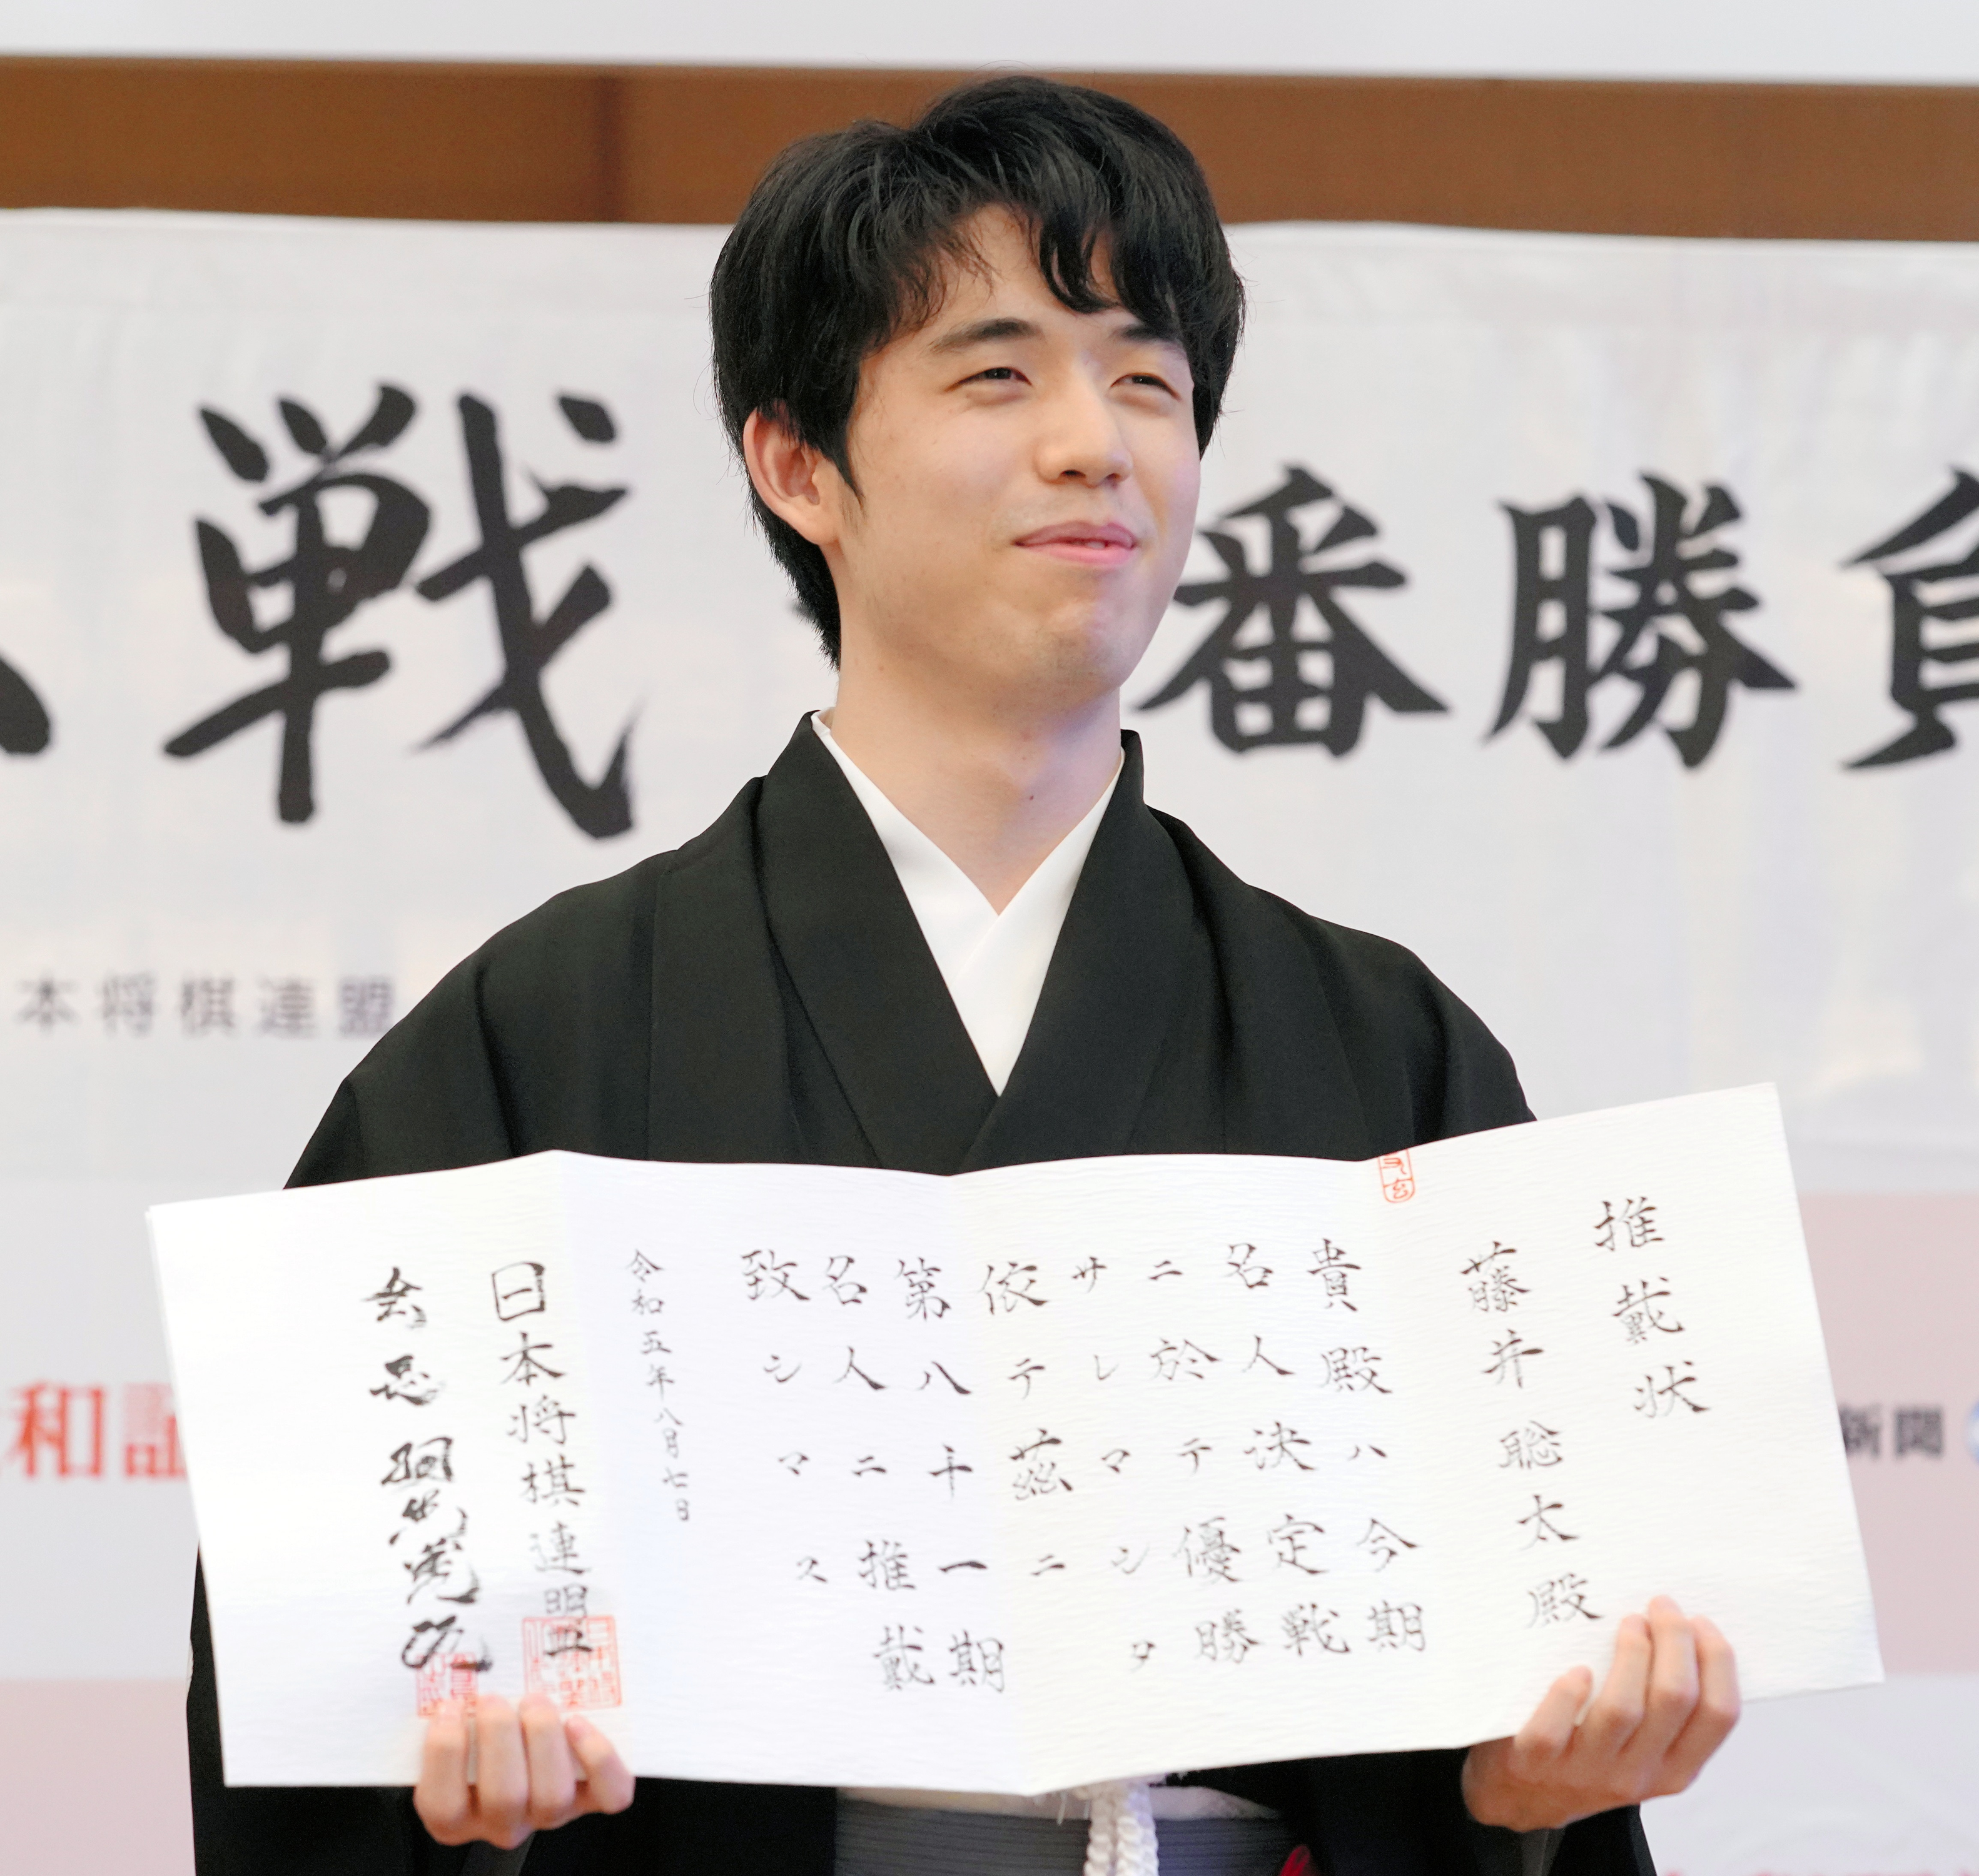 戦 番勝負
本将棋連盟
和証
新聞
推戴状
藤井聡太殿
貴殿ハ今期
名人決定戦
ニ於テ優勝
サレマシタ
依テ茲ニ
第八十一期
名人ニ推戴
致シマス
令和五年八月七日
日本将棋連盟
会長 羽生善治